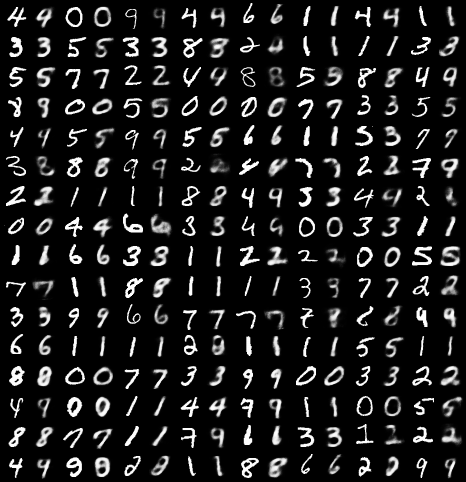 4 9 0 0 9 9 4 9 6 6 1 1 4 4 1 1
3 3 5 5 3 3 8 8 2 1 1 1 1 3 3
5 5 7 7 2 2 4 9 8 8 5 5 8 8 4 9
8 9 0 0 5 5 0 0 0 0 7 7 3 3 5 5
4 4 5 5 9 9 5 5 6 6 1 1 5 3 7 7
3 8 8 8 9 9 2 4 4 7 7 2 2 7 9
2 2 1 1 1 1 8 8 4 9 3 3 4 4 2
0 0 4 4 6 6 3 3 4 9 0 0 3 3 1 1
1 1 6 6 3 3 1 1 2 2 2 2 0 0 5 5
7 7 1 1 8 8 1 1 1 1 3 3 7 7 2 2
3 3 9 9 6 6 7 7 7 7 8 8 8 9 9
6 6 1 1 1 1 2 8 1 1 1 1 5 5 1 1
8 8 0 0 7 7 3 3 9 9 0 0 3 3 2 2
4 9 0 0 1 1 4 4 7 9 1 1 0 0 5 5
8 8 7 7 1 1 7 9 1 1 3 3 1 2 2 2
4 9 9 8 2 8 1 1 8 8 6 6 2 0 9 9